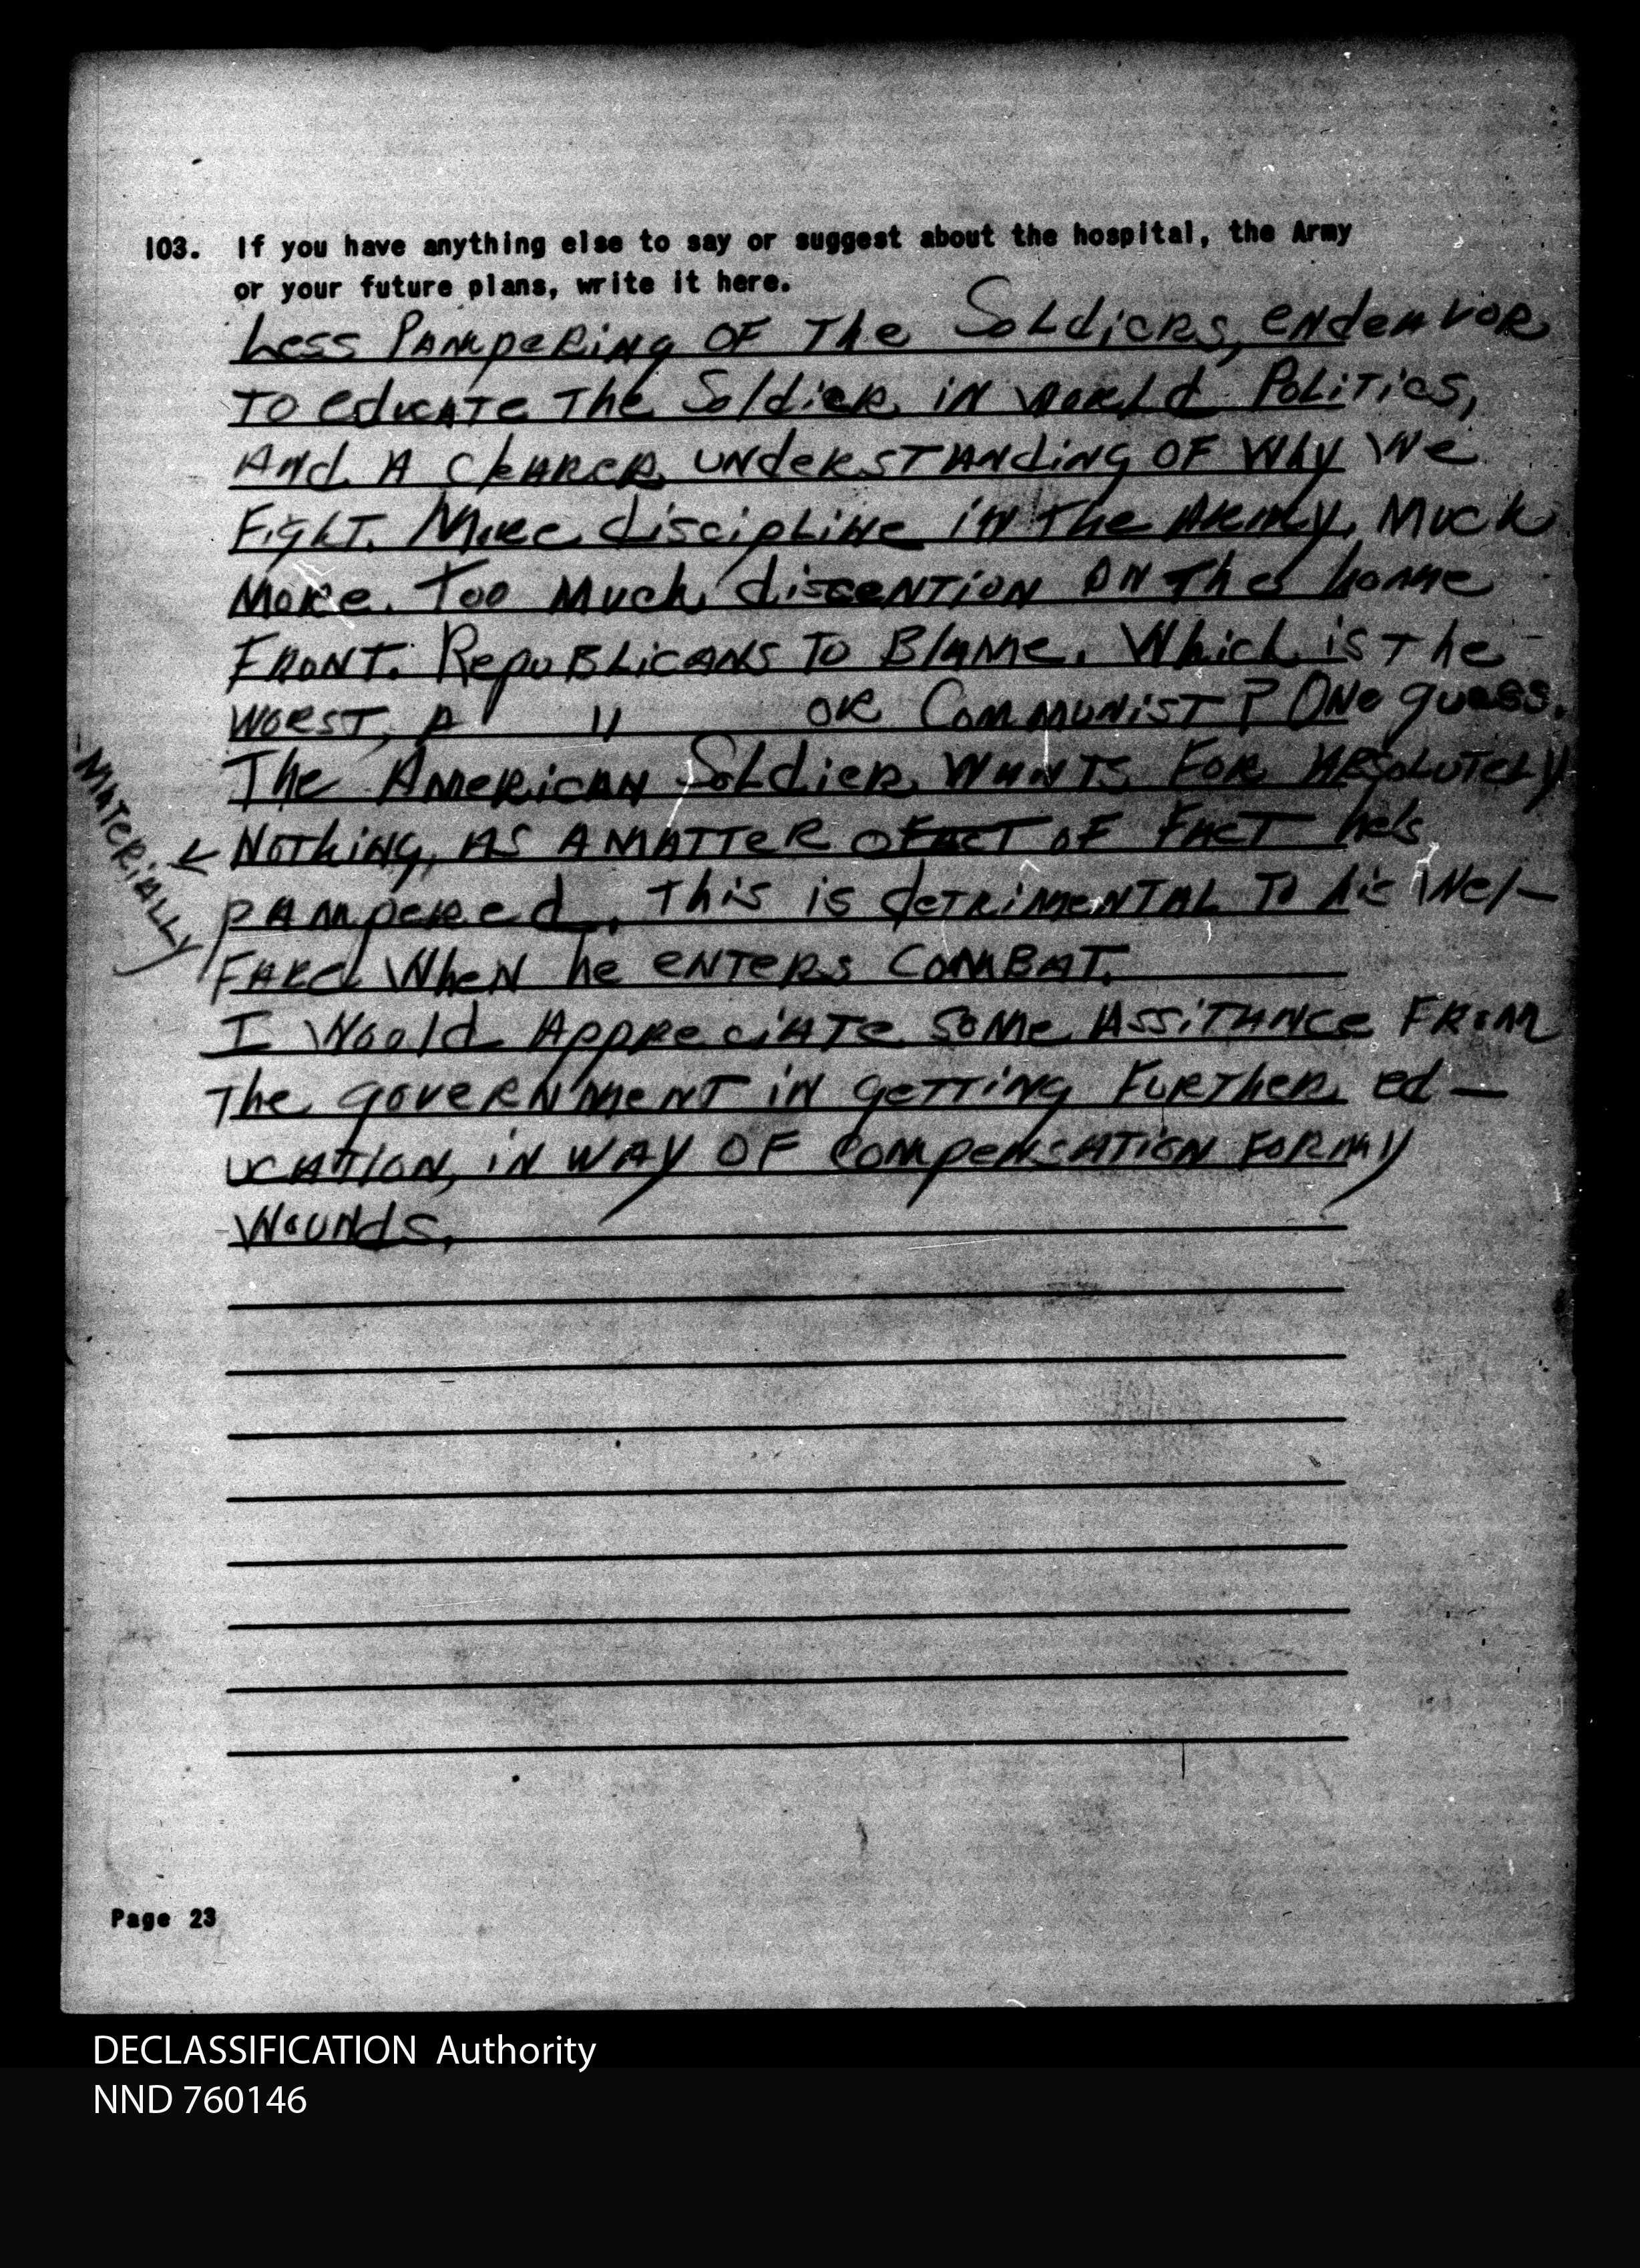 103. If you have anything else to say or suggest about the hospital, the Army
or your future plans, write it here.
Less Pampering of the Soldiers, endeavor
to educate the Soldier in world Politics,
and a clearer understanding of why we
Fight. More discipline in the Army, Much
More. Too Much discention on the home
Front. Republicans to Blame. Which is the
worst, A " or Communist? One guess.
The American Soldier wants for absolutely
-Materially ← Nothing, as a matter of fact of fact he's
pampered. This is detrimental to his wel-
fare when he enters combat.
I would appreciate some assitance from
the government in getting further ed-
ucation, in way of compensation for my
wounds.
Page 23
DECLASSIFICATION Authority
NND 760146